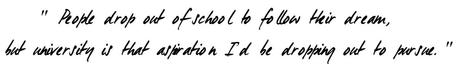 " People drop out of school to follow their dream,
but university is that aspiration I'd be dropping out to pursue. "